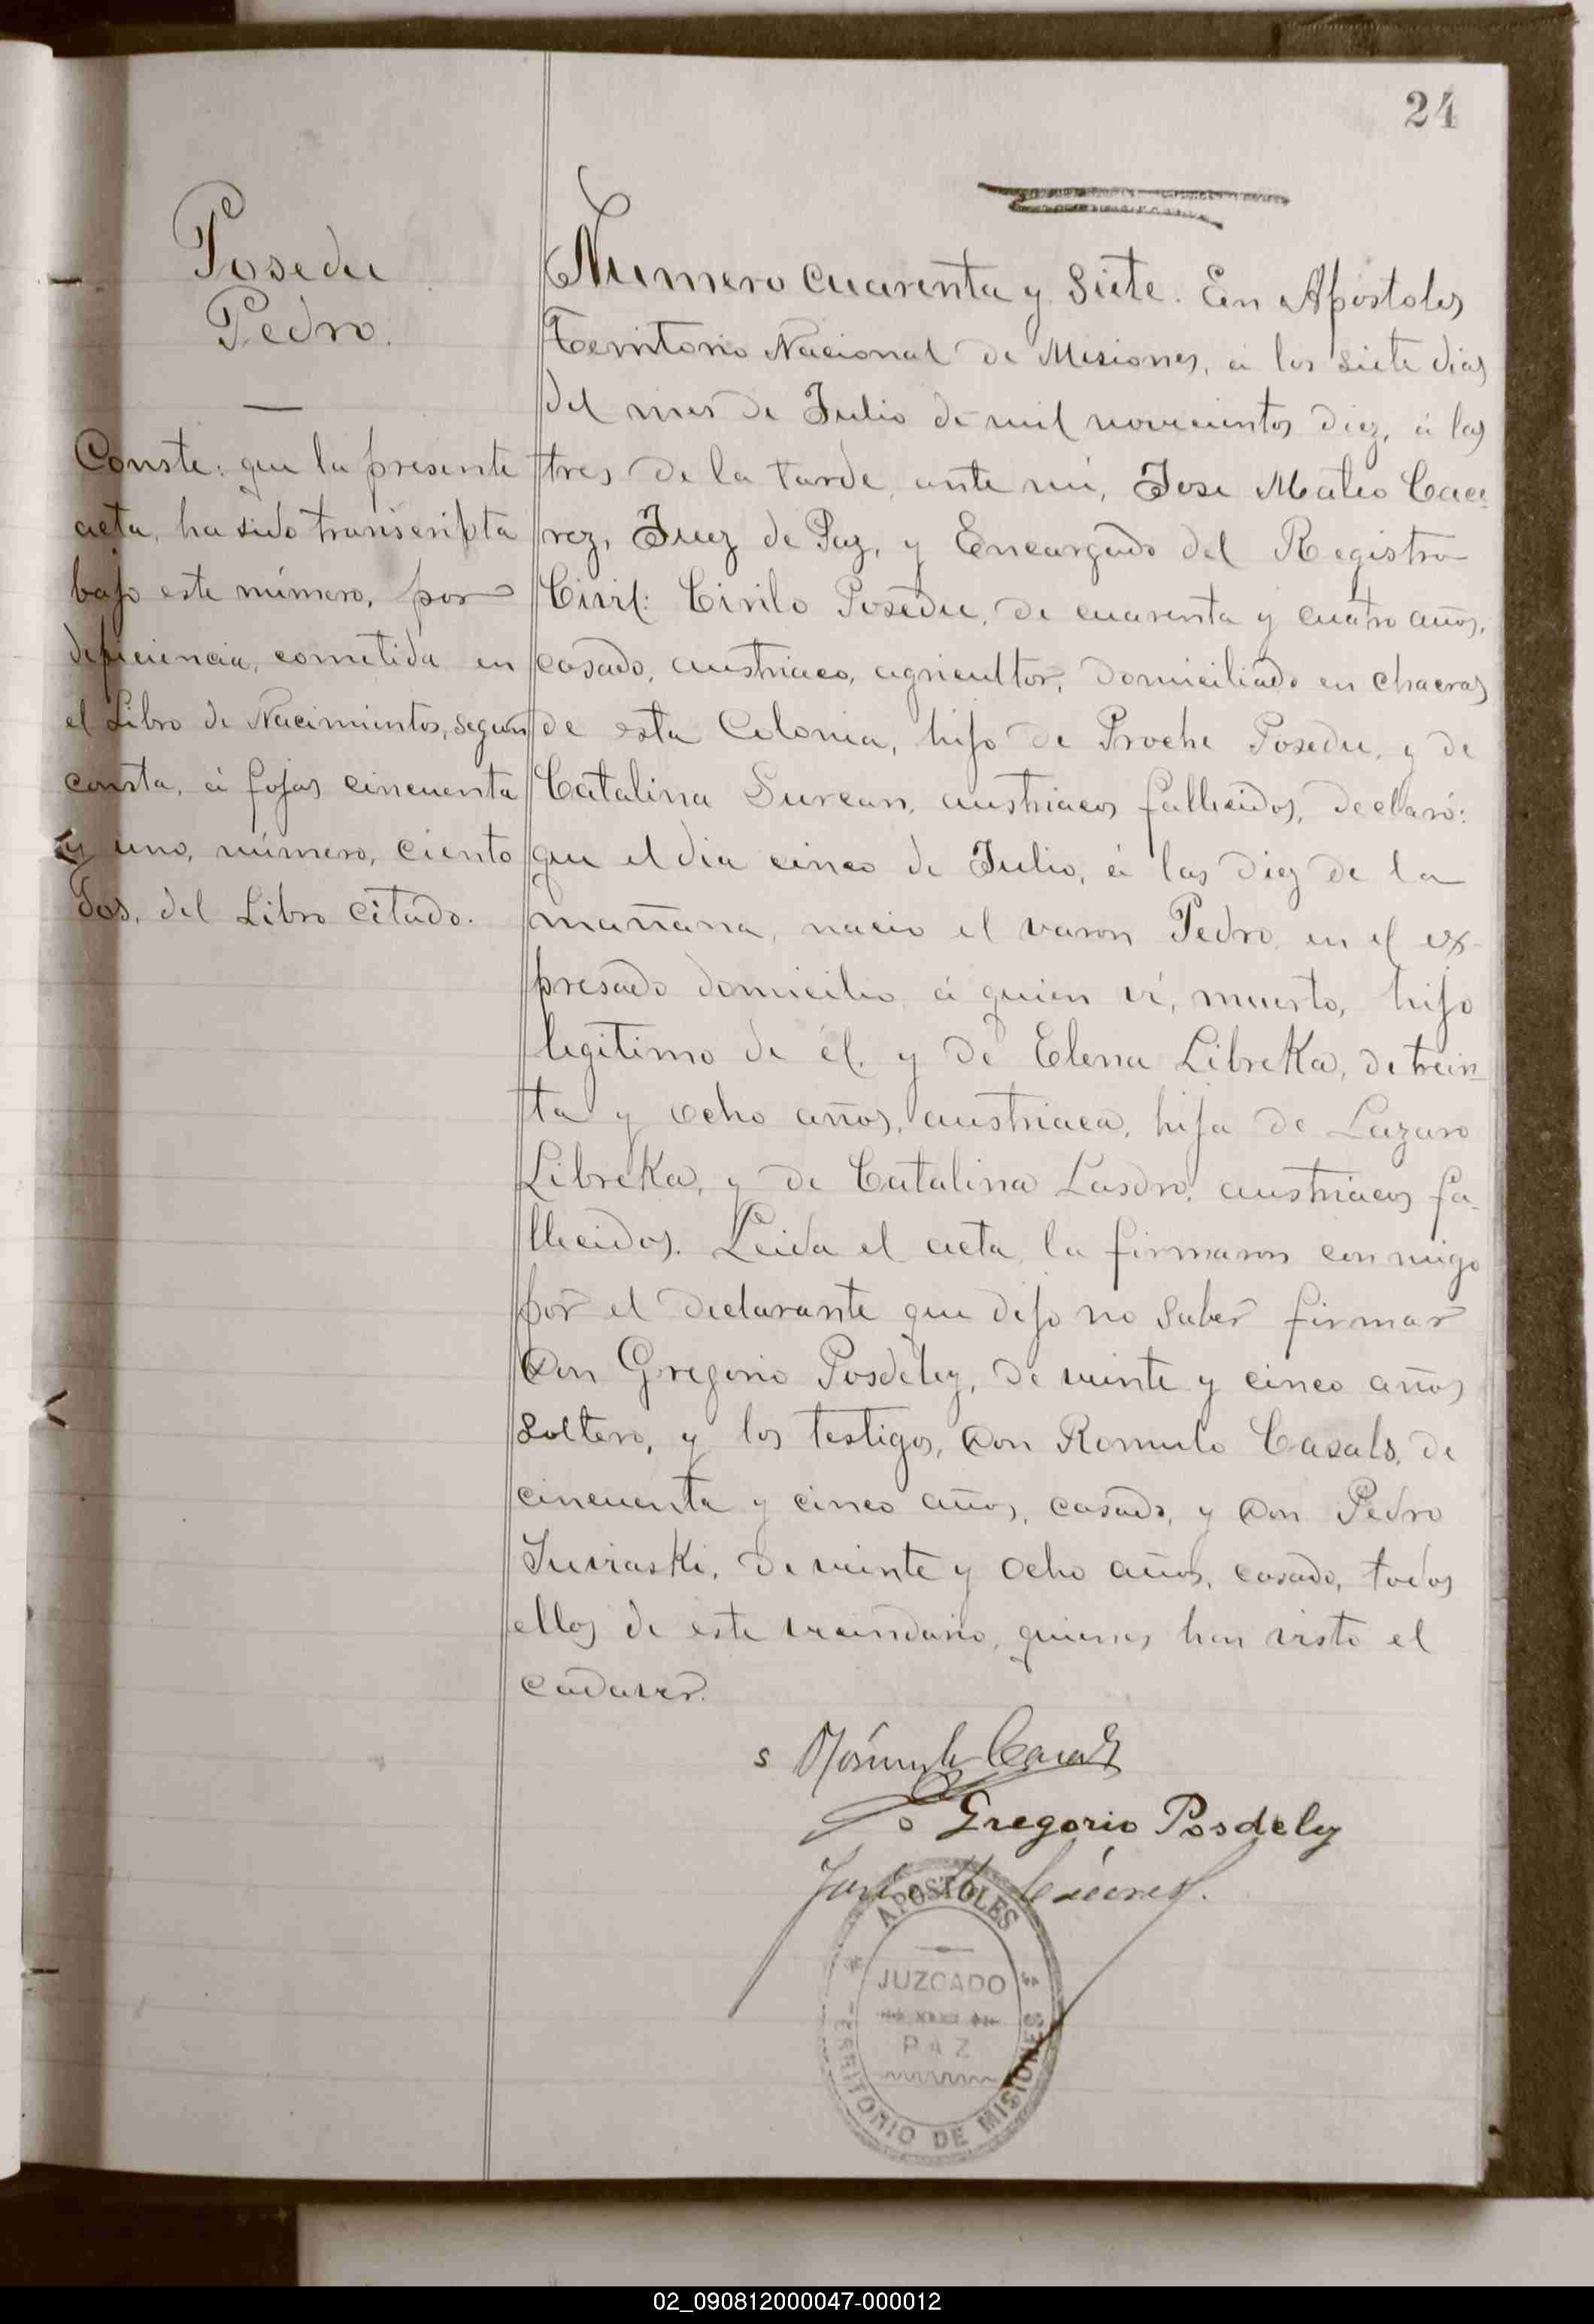 24
Posedu
Pedro.
Conste: que la presente
acta, ha sido transcripta
bajo este número, por
deficiencia, cometida en
el Libro de Nacimientos, segun
consta, á fojas cincuenta
y uno, número, ciento
dos, del Libro citado.
Numero cuarenta y siete. En Apóstoles
Territorio Nacional de Misiones, á los siete dias
del mes de Julio de mil novecientos diez, á las
tres de la tarde, ante mi, Jose Mateo Cace-
rez, Juez de Paz, y Encargado del Registro
Civil: Cirilo Posedu, de cuarenta y cuatro años,
casado, austriaco, agricultor, domiciliado en chacras
de esta Colonia, hijo de Proche Posedu, y de
Catalina Surcan, austriacos fallecidos, declaró:
que el dia cinco de Julio, á las diez de la
mañana, nacio el varon Pedro, en el ex-
presado domicilio á quien ví, muerto, hijo
legitimo de él, y de Elena Libreka, de trein-
ta y ocho años, austriaca, hija de Lazaro
Libreka, y de Catalina Lasdro, austriacos fa-
llecidos. Leida el acta, la firmaron conmigo
por el declarante que dijo no saber firmar
Don Gregorio Posdeley, de veinte y cinco años
soltero, y los testigos, Don Romulo Casals, de
cincuenta y cinco años, casado, y Don Pedro
Juviaski, de veinte y ocho años, casado, todos
ellos de este vecindario, quienes han visto el
cadaver.
Rómulo Casals
Gregorio Posdeley
José M. Cáceres.
APOSTOLES
JUZGADO
PAZ
TERRITORIO DE MISIONES
02_090812000047-000012